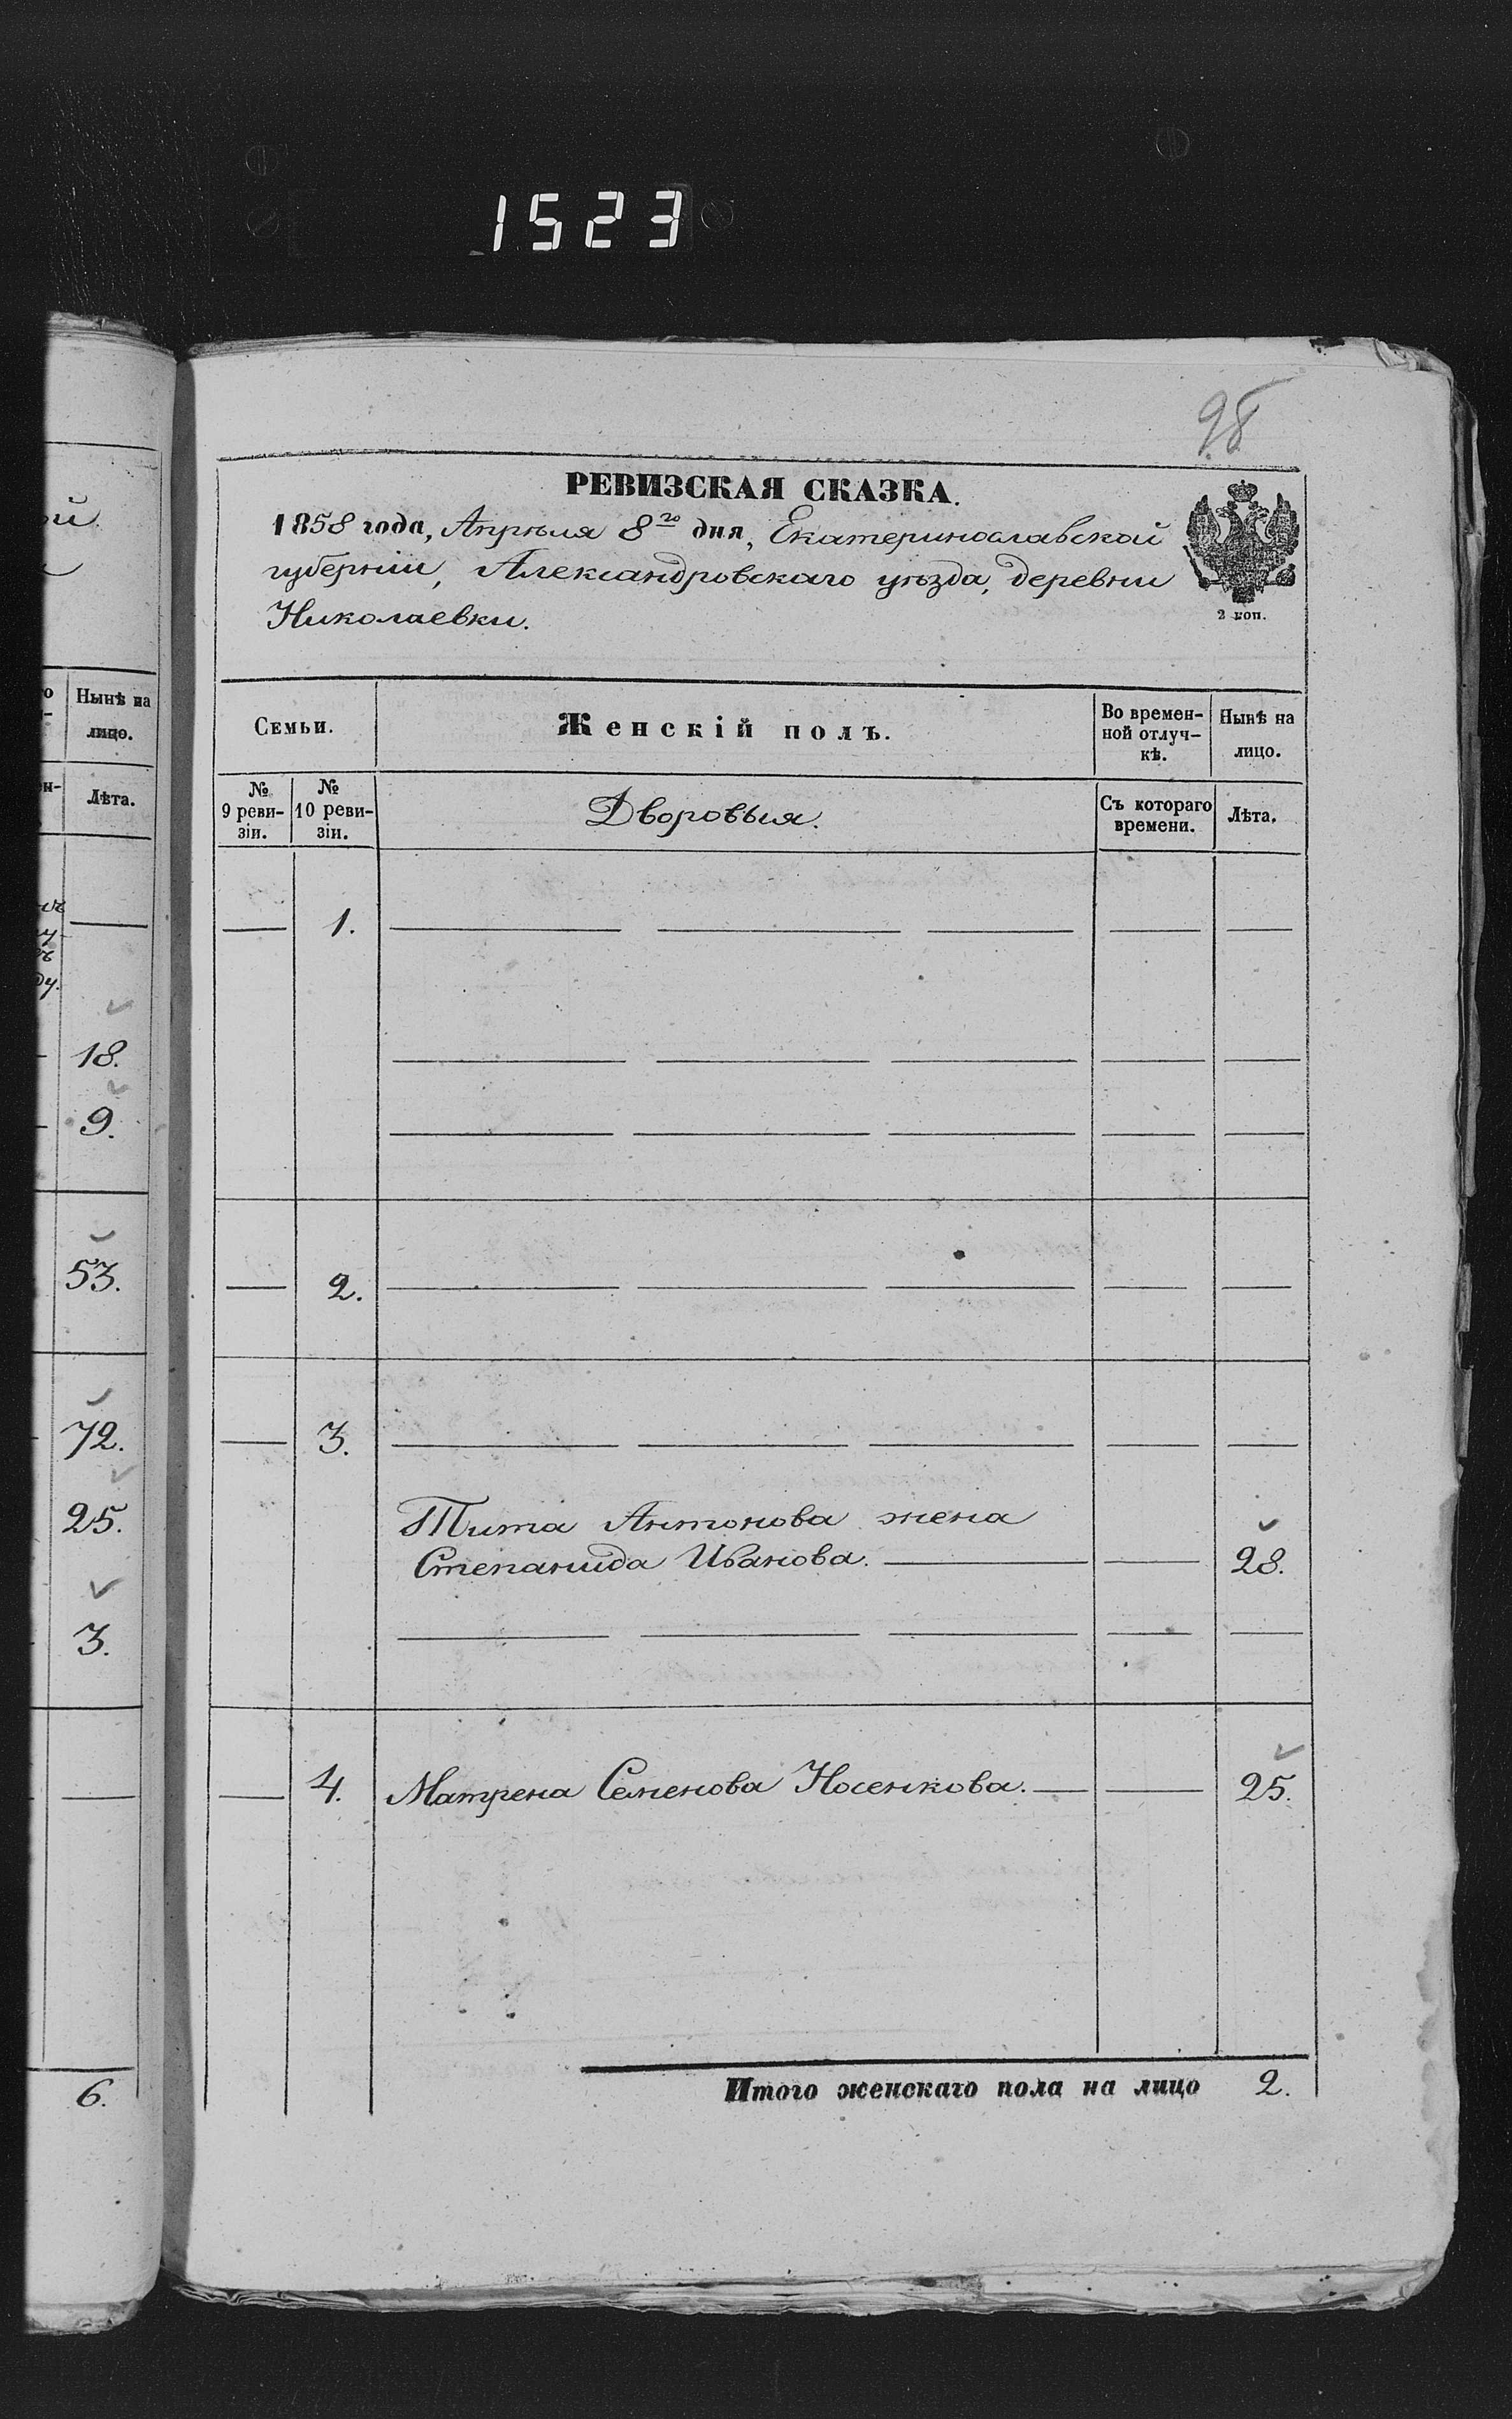 1523
98
РЕВИЗСКАЯ СКАЗКА.
1858 года, Апрѣля 8го дня, Екатеринославской
губерніи, Александровскаго уѣзда, деревни
Николаевки.
2 коп.
Нынѣ на
лицо.
Лѣта.
18.
9.
53.
72.
25.
3.
6.
Семьи.
Женскій полъ.
Во времен-
ной отлуч-
кѣ.
Нынѣ на
лицо.
№
9 реви-
зіи.
№
10 реви-
зіи.
Дворовыя.
Съ котораго
времени.
Лѣта.
1.
2.
3.
Тита Антонова жена
Степанида Иванова. 28.
4. Матрена Семенова Носенкова. 25.
Итого женскаго пола на лицо 2.